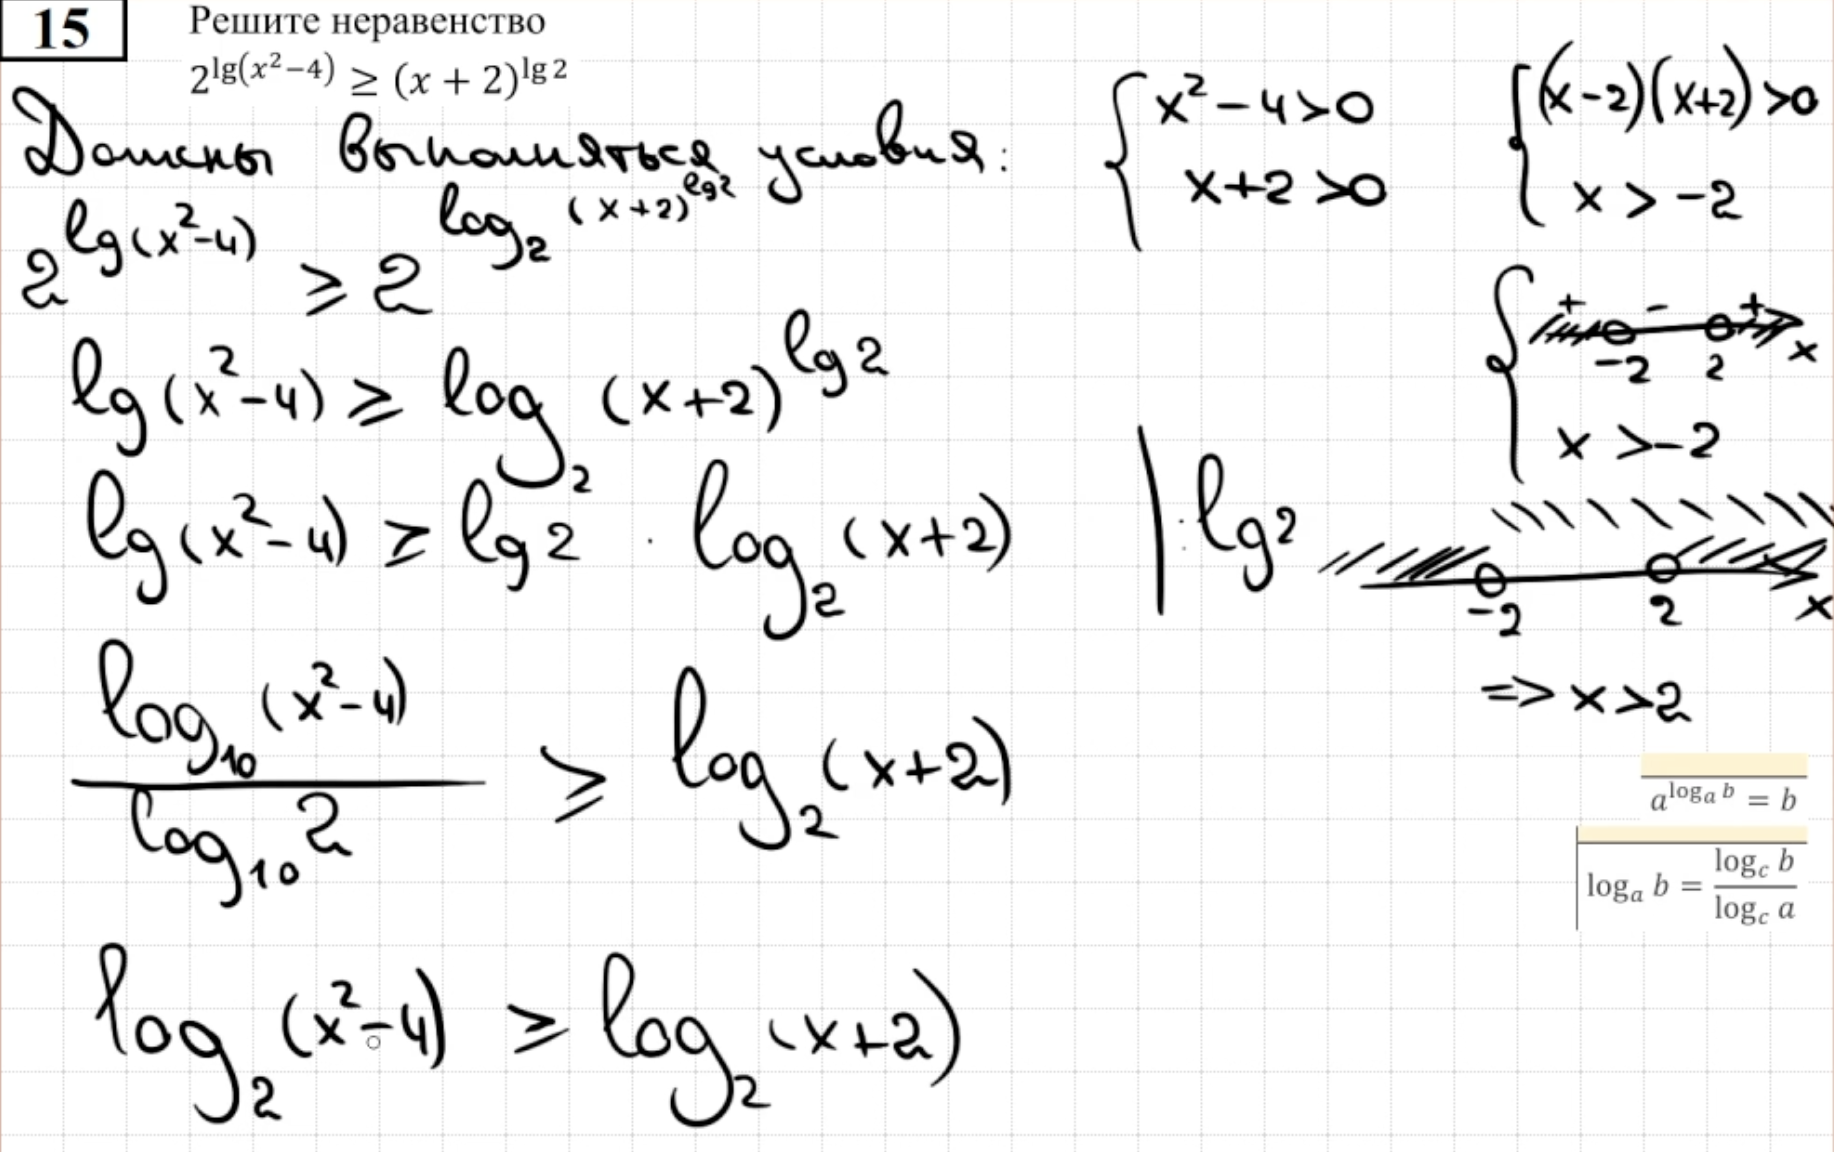 15
Решите неравенство
2^{lg(x²−4)} ≥ (x + 2)^{lg 2}
Должны выполняться условия:
{ x² − 4 > 0
x + 2 > 0
{ (x−2)(x+2) > 0
x > −2
2^{lg(x²−4)} ≥ 2^{log₂ (x+2)^{lg2}}
{ + − +
−2 2 x
x > −2
lg(x²−4) ≥ log₂ (x+2)^{lg2}
lg(x²−4) ≥ lg2 · log₂ (x+2) | : lg2
−2 2 x
=> x > 2
log₁₀ (x²−4) / log₁₀ 2 ≥ log₂ (x+2)
a^{logₐ b} = b
logₐ b = log_c b / log_c a
log₂ (x²−4) ≥ log₂ (x+2)